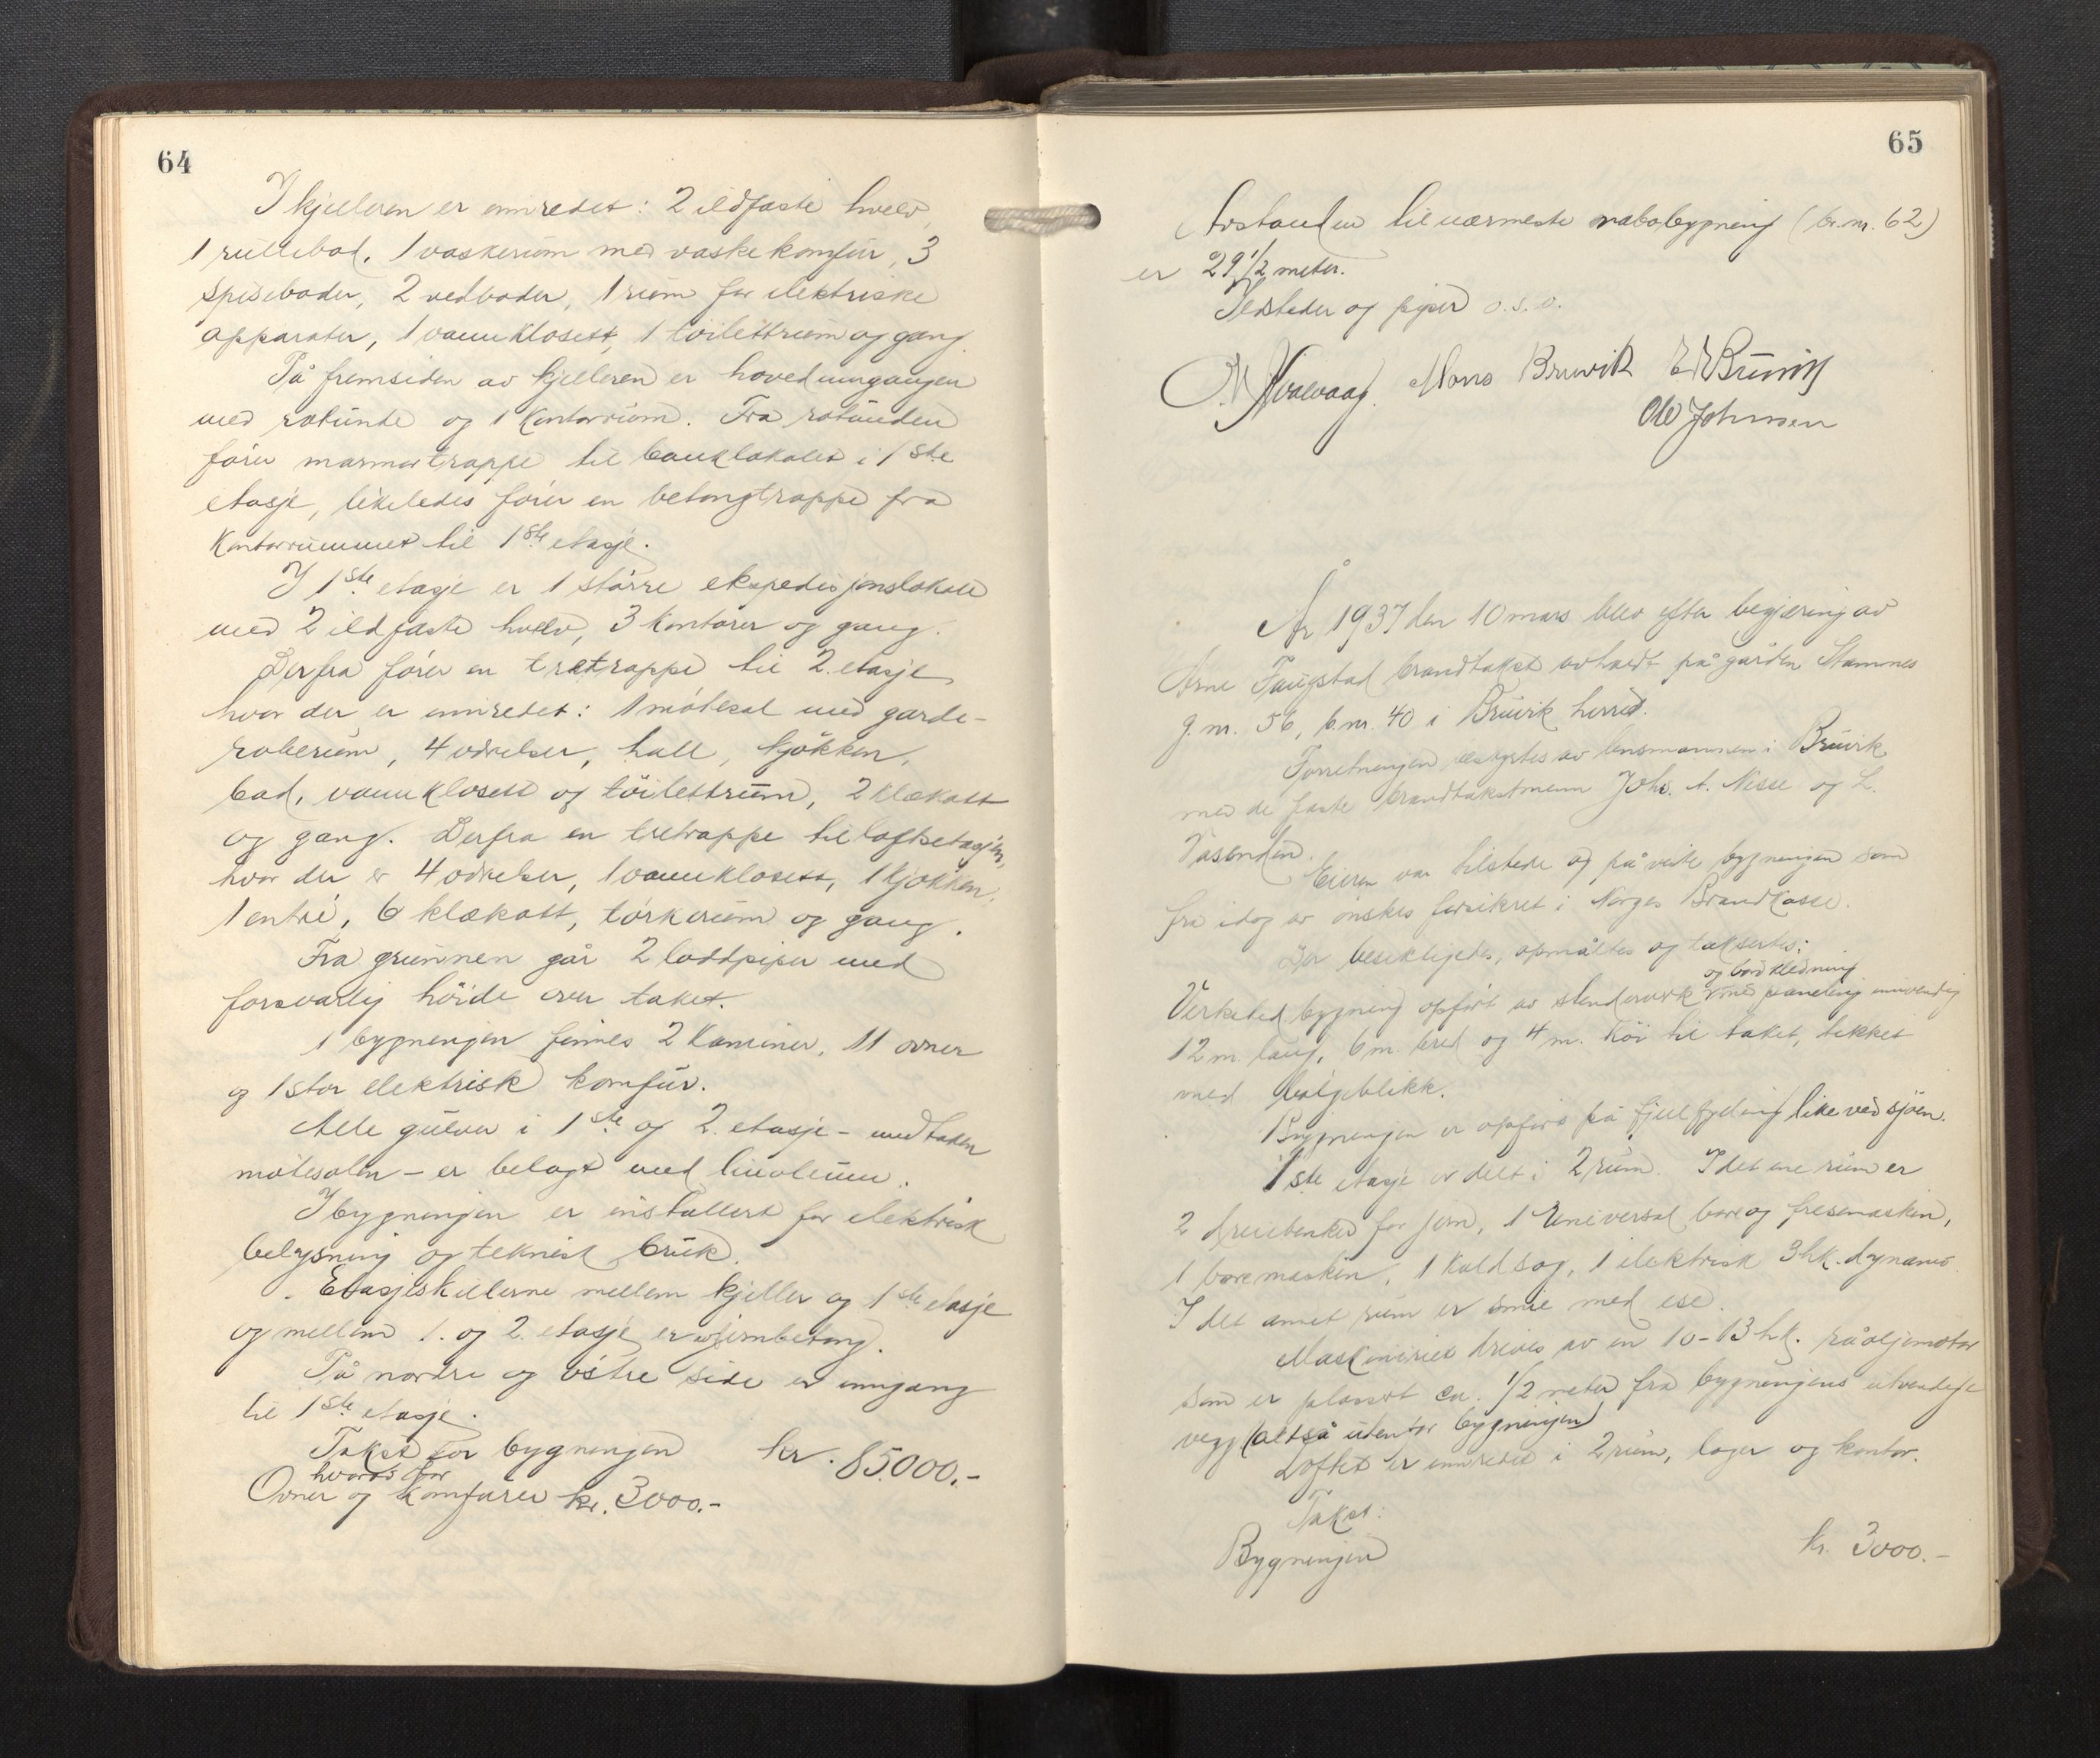 64
I kjelleren er innredet: 2 ildfaste hvelv,
1 rullebod, 1 vaskerum med vaskekomfur, 3
spiseboder, 2 vedboder, 1 rum for elektriske
apparater, 1 vannklosett, 1 toilettrum og gang.
På fremsiden av kjelleren er hovedinngangen
med rotunde og 1 kontorrum. Fra rotunden
förer marmortrappe til banklokalet i 1ste
etasje, likeledes förer en betongtrappe fra
kontorrummet til 1ste etasje.
I 1ste etasje er 1 större ekspedisjonslokale
med 2 ildfaste hvelv, 3 kontorer og gang.
Derfra förer en tretrappe til 2. etasje
hvor der er innredet: 1 mötesal med garde-
roberum, 4 værelser, hall, kjökken,
bad, vannklosett og töilettrum, 2 klækott
og gang. Derfra en tretrappe til loftsetasjen,
hvor der er 4 værelser, 1 vannklosett, 1 kjökken,
1 entré, 6 klækott, törkerum og gang.
Fra grunnen går 2 loddpiper med
forsvarlig höide over taket.
I bygningen finnes 2 kaminer, 11 ovner
og 1 stor elektrisk komfur.
Alle gulver i 1ste og 2. etasje - undtaken
mötesalen - er belagt med linoleum.
I bygningen er installert for elektrisk
belysning og teknisk bruk.
Etasjeskillerne mellem kjeller og 1ste etasje
og mellem 1. og 2. etasje er av jernbetong.
På nordre og östre side er inngang
til 1ste etasje.
Takst for bygningen kr. 85000.-
hvorav for
Ovner og komfurer kr. 3000.-
65
Avstanden til nærmeste nabobygning (br.nr. 62)
er 29 1/2 meter.
Ildsteder og piper o.s.v.
Kvalvaag. Mons Bruvik
Ole Johnsen
År 1937 den 10 mars blev efter begjæring av
Arne Faugstad brandtakst avholdt på gården Stamnes
g.nr. 56, b.nr. 40 i Bruvik herred.
Forretningen bestyrtes av lensmannen i Bruvik
med de faste brandtakstmenn Johs. A. Nesse og L.
Vasenden.
Eieren var tilstede og påviste bygningen som
fra idag av önskes forsikret i Norges Brandkasse.
Der besiktigedes, opmåltes og taksertes:
og bordkledning
Verksted bygning opfört av stenderverk med paneling innvendig
12 m. lang, 6 m. bred og 4 m. höi til taket, tekket
med bölgeblikk.
Bygningen er opfört på fjell fylling like ved sjöen.
1ste etasje er delt i 2 rum. I det ene rum er
2 dreiebenker for jern, 1 Universal bore og fresemaskin,
1 boremaskin, 1 kaldsag, 1 elektrisk 3 hk. dynamo.
I det annet rum er smie med esse.
Maskineriet drives av en 10-13 hk. råoljemotor
som er plasert ca. 1/2 meter fra bygningens utvendige
vegg (altså utenfor bygningen)
Loftet er innredet i 2 rum, lager og kontor.
Takst:
Bygningen kr. 3000.-